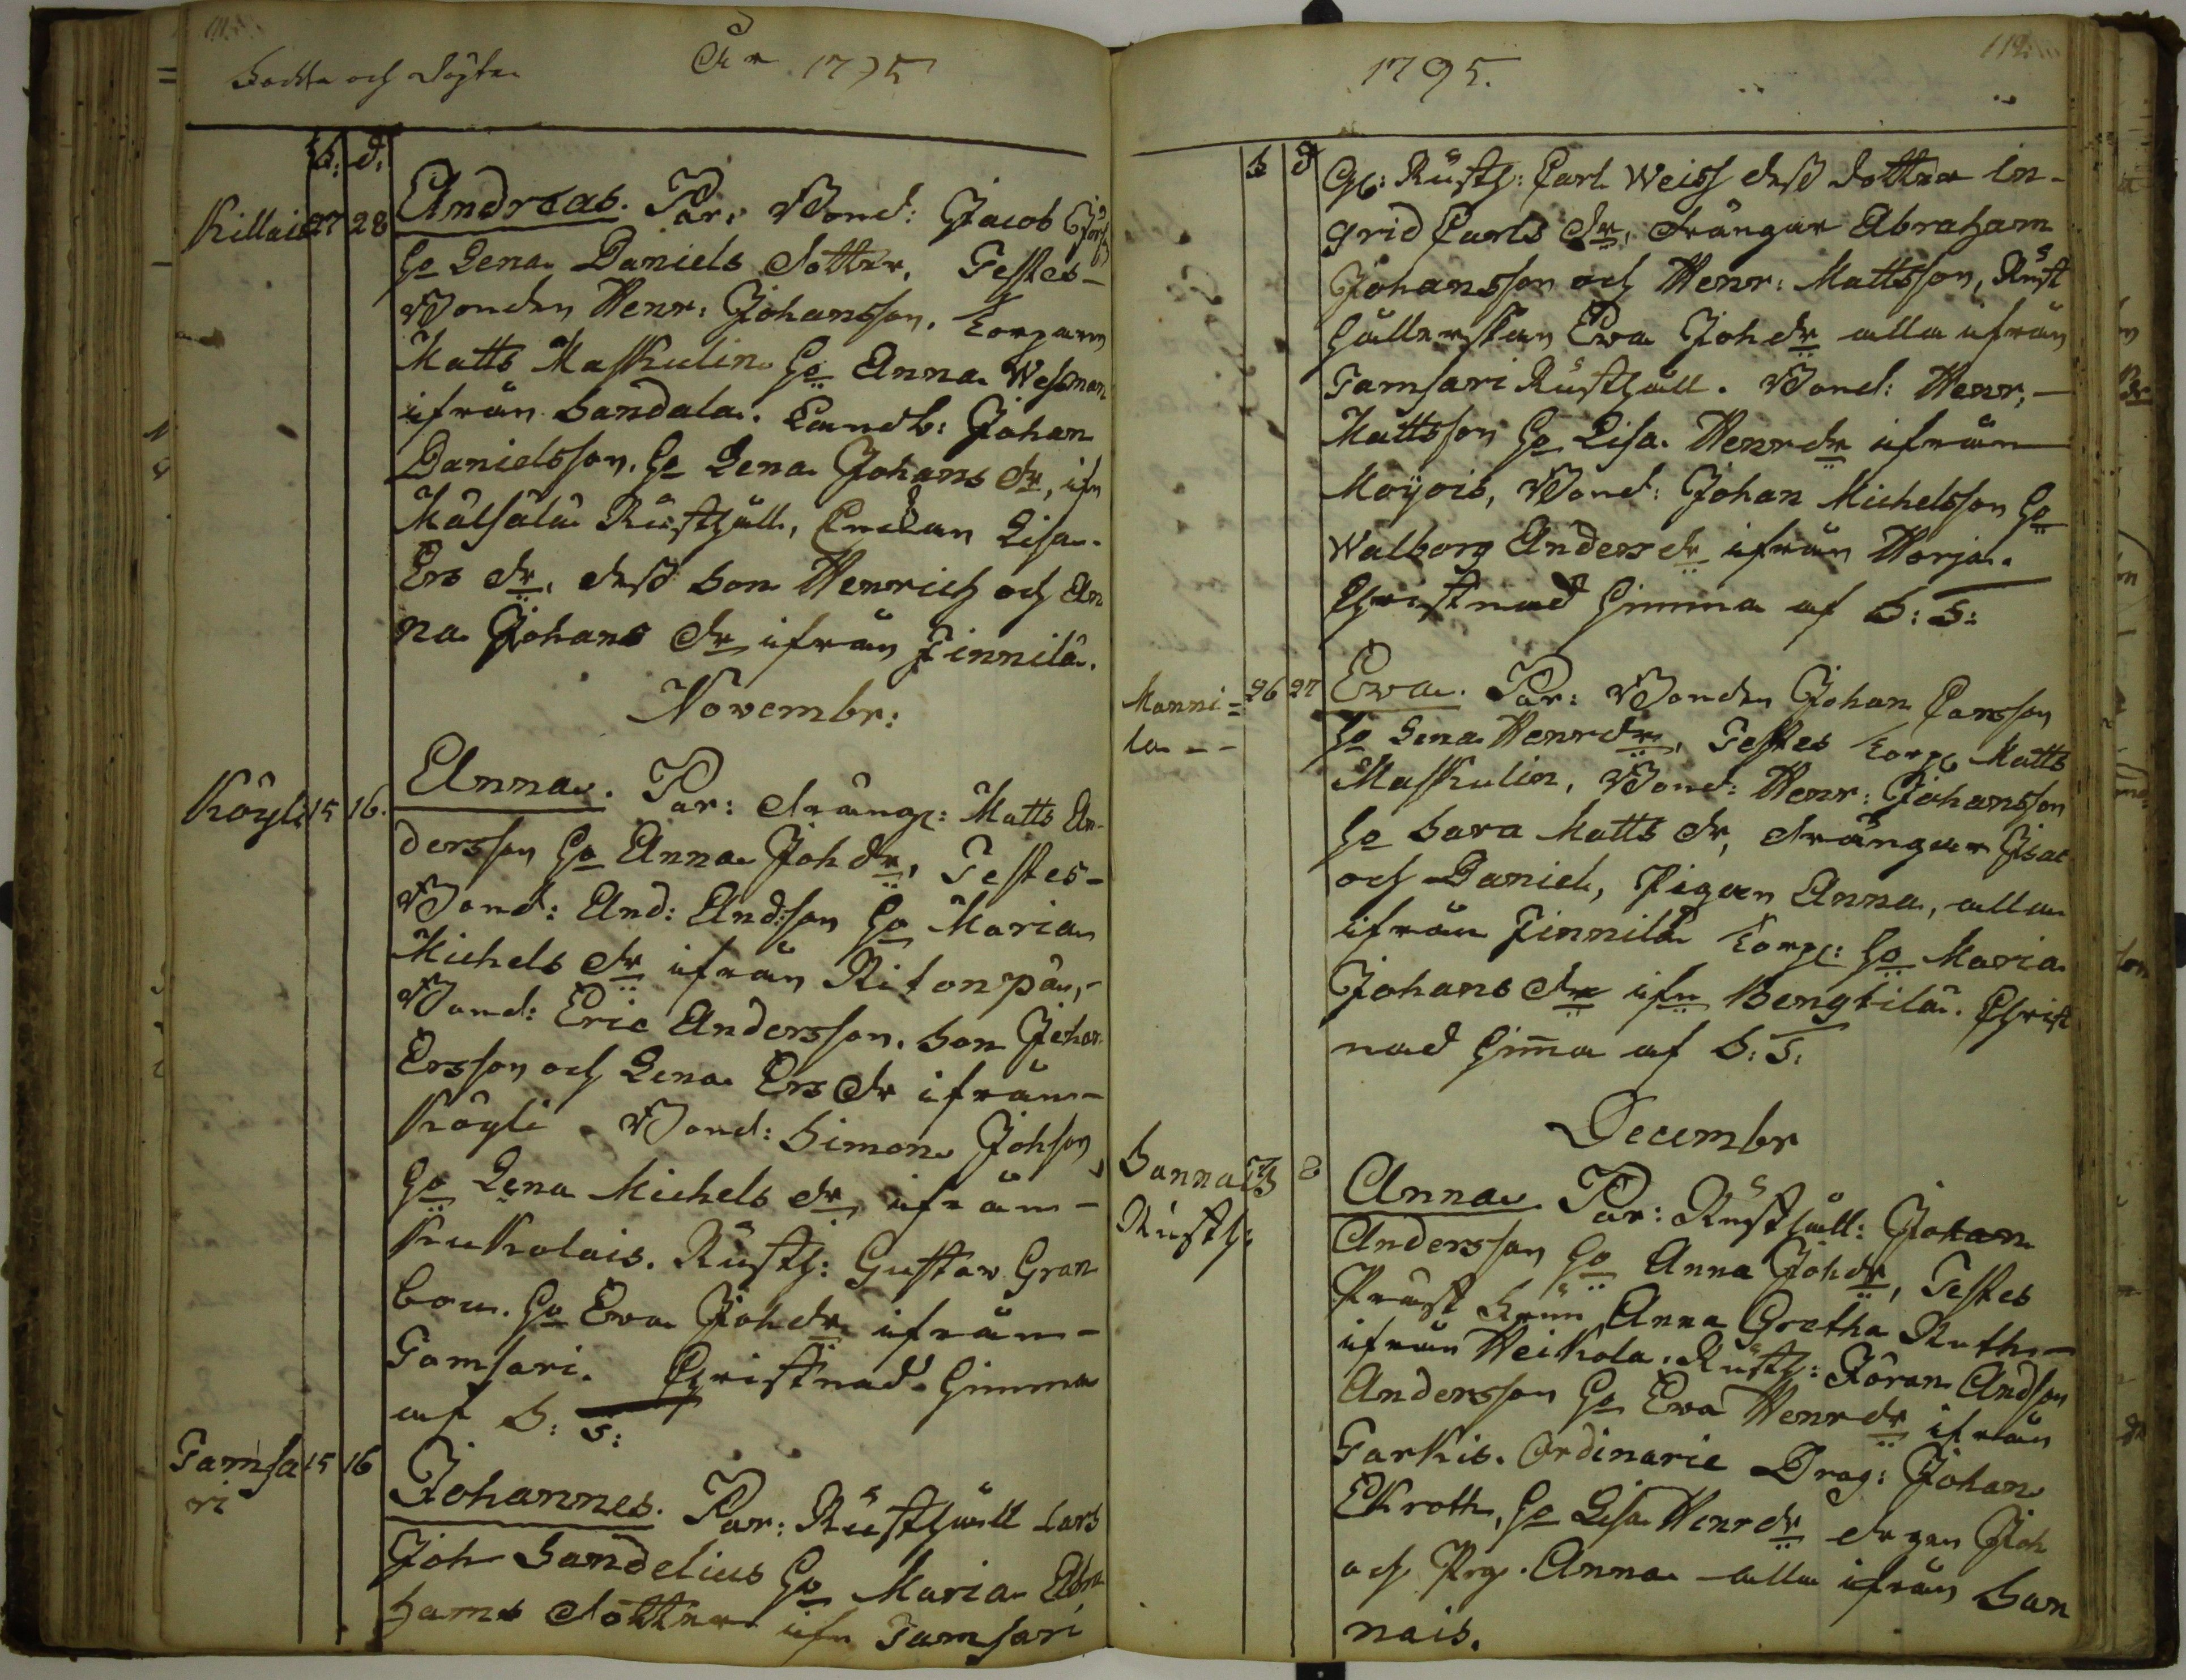 Födde och Döpte
År 1795
f. d.
Killais 27 28
Andreas. Par: Bond: Jacob
ho Lena Daniels dotter. Testes-
Bonden Henr: Johansson. Torparn
Matts Maskulin ho Anna
ifrån Sandala. Landb: Johan
Danielsson. ho Lena Johans dr, ifn
Målsala Rusthåll, Enkan Lisa
Ers dr, dess Son Henrich och An
na Johans dr ifrån Finnilä.
Novembr:
Köyli 15 16.
Anna. Par: Dräng: Matts An-
dersson ho Anna Joh dr, Testes-
Bond: And: Andsson ho Maria
Michels dr ifrån Ritonpä,-
Bond: Eric Andersson. Son Johan
Ersson och Lena Ers dr ifrån-
Köyli. Bond: Simon Johsson
ho Lena Michels dr ifrån-
Kukolais. Rusth: Gustav Gran
bom. ho Eva Joh dr ifrån-
Tamsari. Christnad hemma
af S: S:
Tamsa
ri 15 16
Johannes. Par: Rusthåll Lars
Joh Sandelius ho Maria Abra
hams dotter ifn Tamsari
1795.
f d
Gl: Rusth: Carl Weiss dess dotter In-
grid Carls dr, drängar Abraham
Johansson och Henr: Mattsson, Rust
hållerskan Eva Joh dr alla ifrån
Tamsari Rusthåll. Bond: Henr:-
Mattsson ho Lisa Henr dr ifrån
Moijois, Bond: Johan Michelsson ho
Walborg Anders dr ifrån Horja.
Christnad hemma af S: S:
Manni=
la - - 26 27
Eva. Par: Bonden Johan Carsson
ho Lena Henr dr, Testes Torp Matts
Maskulin, Bond: Henr: Johansson
ho Sara Matts dr, drängar Isac
och Daniel, Pigan Anna, alla
ifrån Finnilä Torp: ho Maria
Johans dr ifn Bengtilä. Christ
nad hem̄a af S: S:
Decembr
Sanna
Rusth: 8
Anna. Par: Rusthåll: Johan
Andersson ho Anna Joh dr, Testes
Prost Anna Gretha Ruth-
ifrån Heikola. Rusth: Jöran Andsson
Andersson ho Eva Henr dr ifrån
Tarkis. Ordinarie Drag: Johan
Ekroth, ho Lisa Henr dr drgen Joh
och Pig. Anna alla ifrån San
nais.